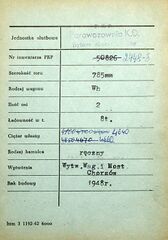 Jednostka służbowa Parowozownia K.D.
Nr inwentarza PKP 50826 2448-S
Szerokość toru 785mm
Rodzaj wagonu Wh
Ilość osi 2
Ładowność w t. 8t.
Ciężar własny 4640
Rodzaj hamulca ręczny
Wytwórnia Wytw.Wag.i Most
Chorzów
Rok budowy 1948r.